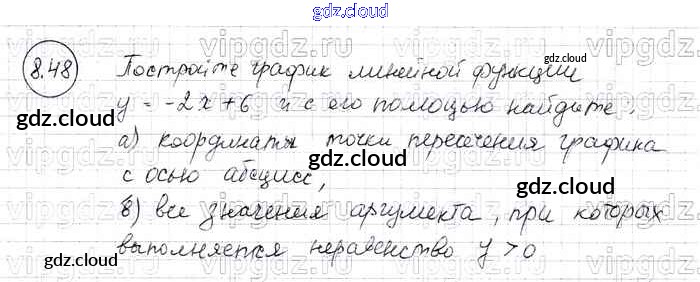 gdz.cloud
8.48 Постройте график линейной функции
y = -2x+6 и с его помощью найдите:
а) координаты точки пересечения графика
с осью абсцисс,
в) все значения аргумента, при которых
выполняется неравенство y > 0
gdz.cloud
gdz.cloud
gdz.cloud
gdz.cloud
gdz.cloud
gdz.cloud